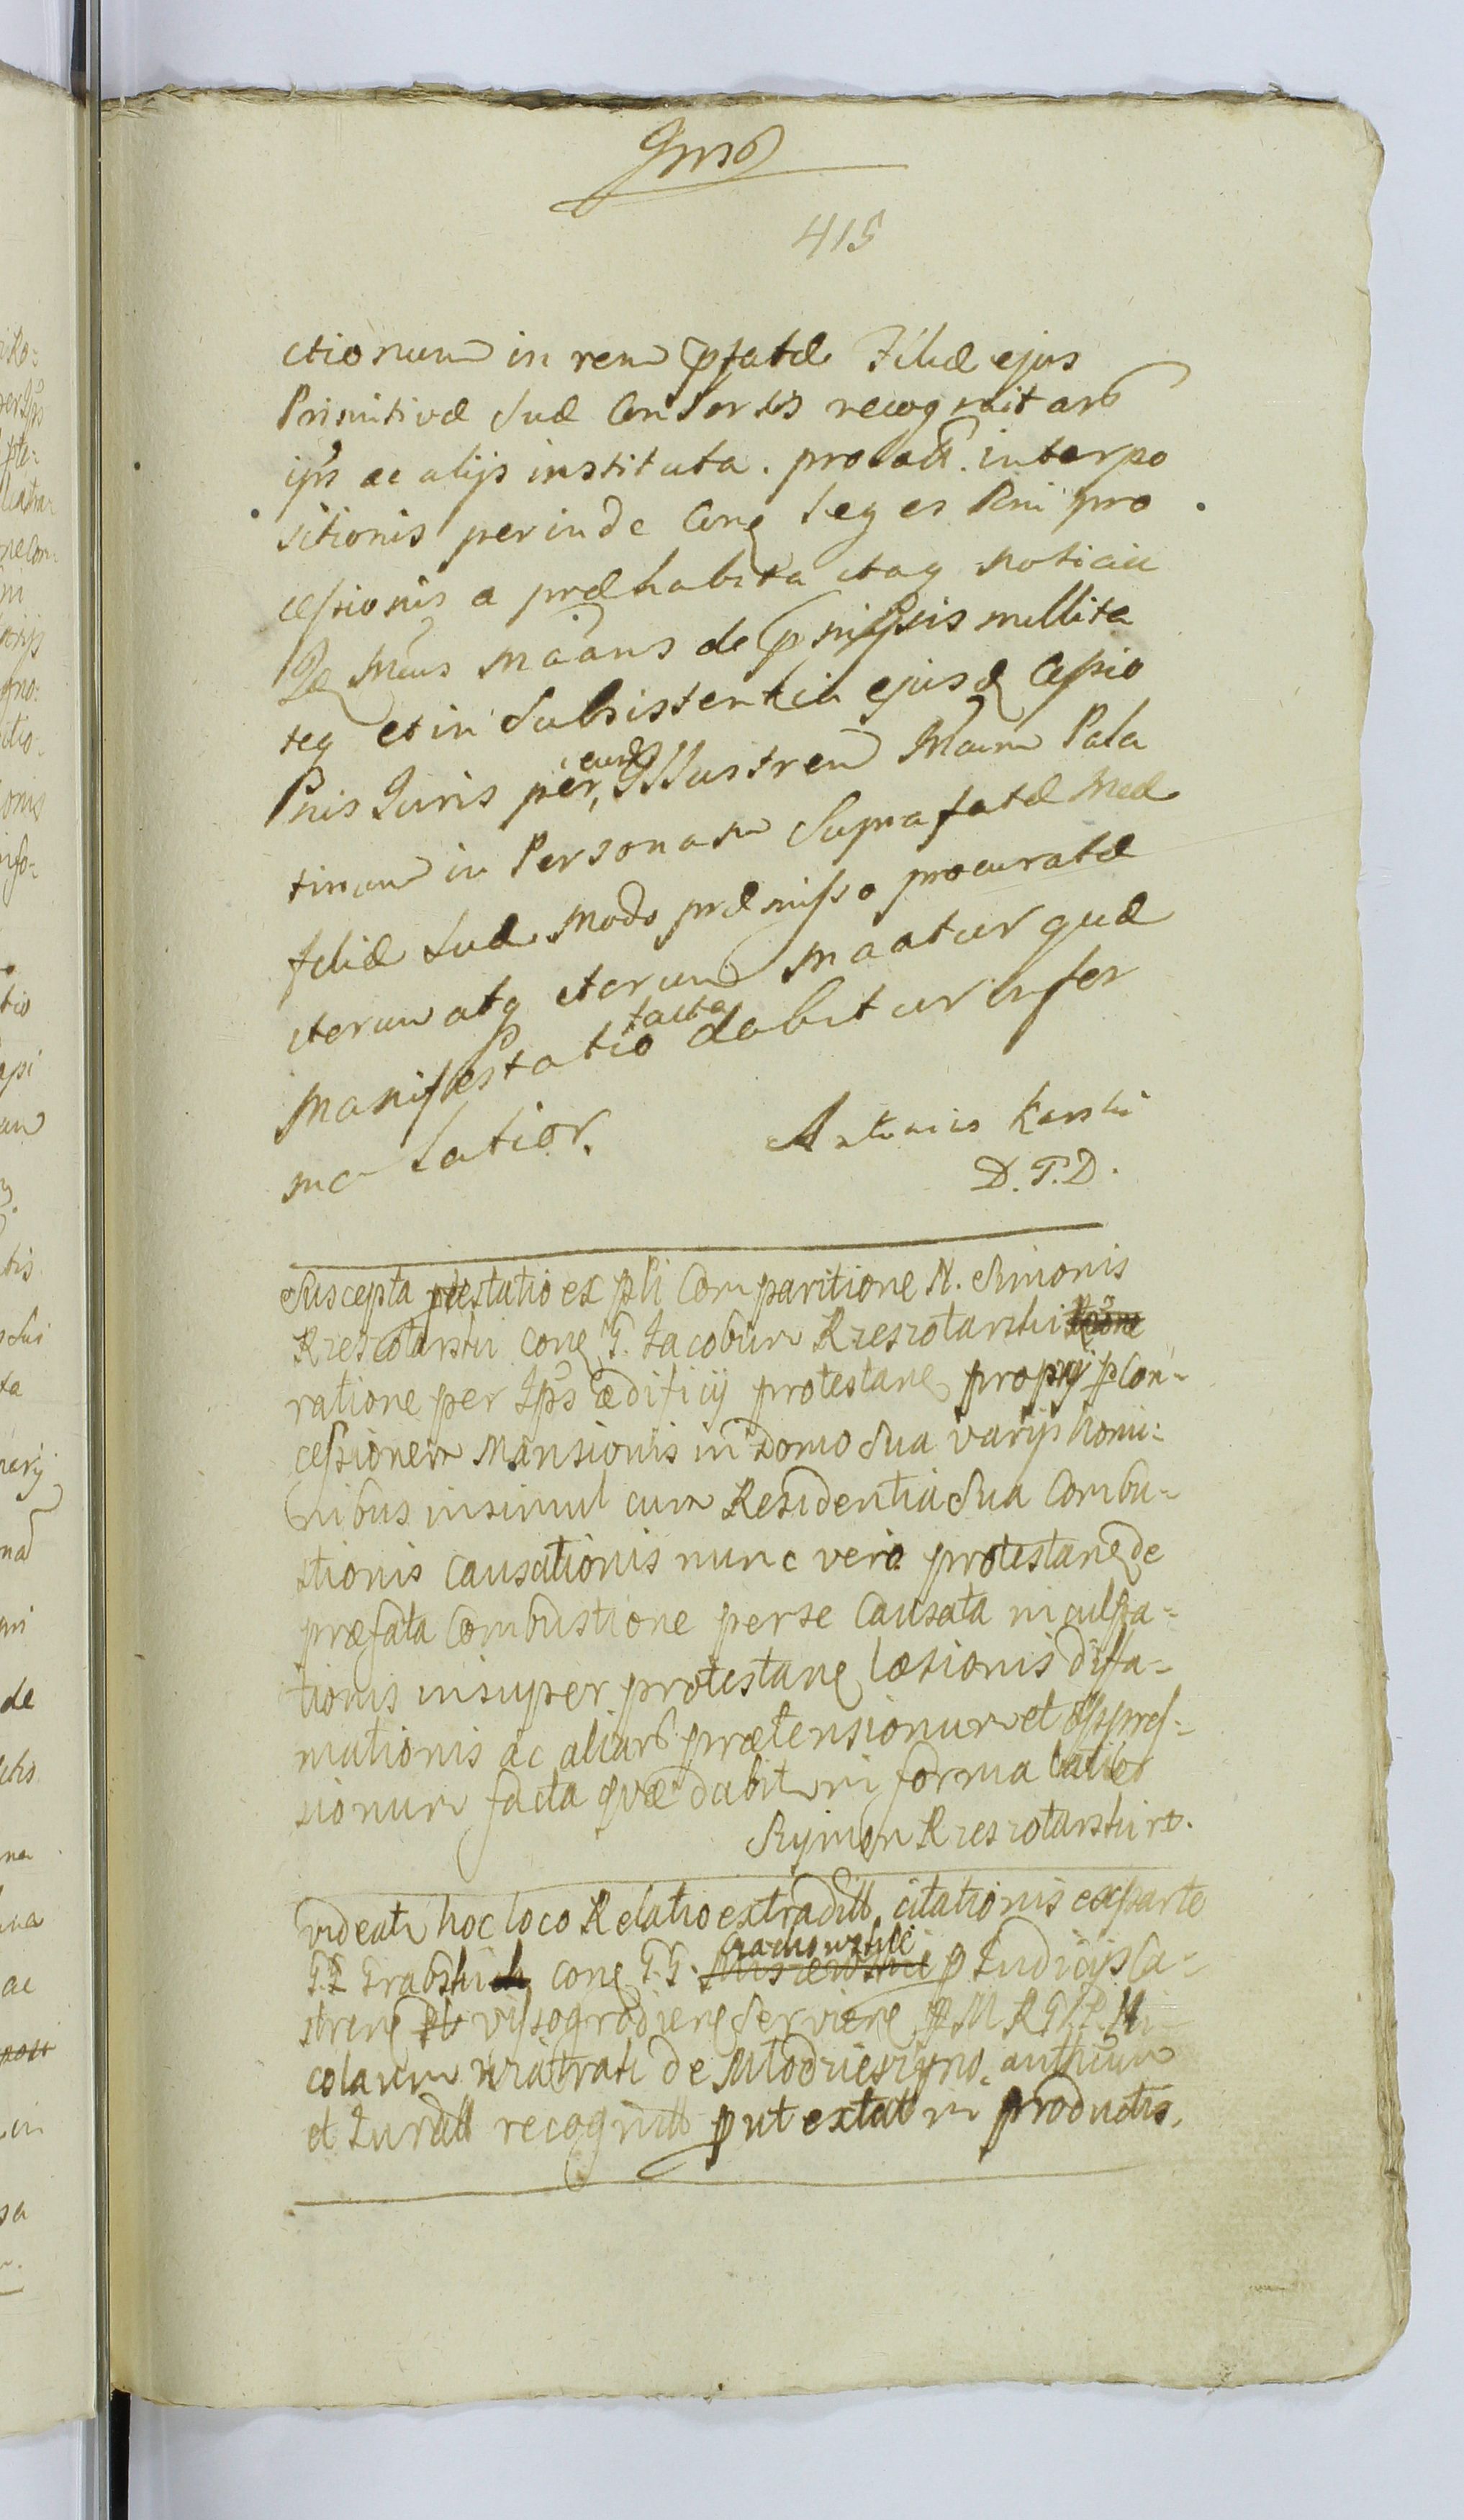 415
ctionum in rem pfatæ Filiæ ejus
Primitivæ Suæ Consortis recognitar
ips ac alijs instituta. interpo
sitionis perinde Conq Leges Rni pro
cessionis a præhabita itaq noticia
Mcus maans de pmissis nullita
teq et in Subsistentia ejusd Cessio
nis Juris per eund Illustrem Mcum Pala
tinum in Personam Supra fatæ Mcæ
filiæ Suæ modo præmisso procuratæ
iterum atq iterum maatur quæ
manifestatio facta dabitur infor
ma latior.
Antonius Karski
D. T. D.
Suscepta ptestatio ex pli Comparitione N. Simonis
Krescotarski conq G. Jacobum Krzeszotarski
ratione per Ips ædificij protestane proprij p Con-
cessionem Mansionis in Domo Sua varijs homi-
nibus insimul cum Residentia Sua Combu-
stionis Causationis nunc vero protestane de
præfata Combustione per se Causata inculpa-
tionis insuper protestane læsionis diffa-
mationis ac aliar prætensionum et oppres-
sionum facta quæ dabit in forma latior
Szymon Krzeszotarski rt.
videatr hoc loco Relatio extraditt citationis ex parte
GG Grabski conq G.G. p Judicijs Ca-
strens Vyssogrodiens Serviens Ni-
colaum de Młodzieszyno. authicum
et Juratt recognitt put extat in productis.